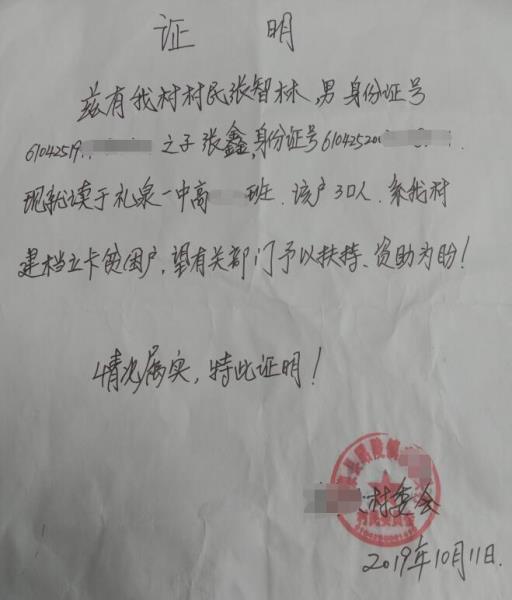 证 明
兹有我村村民张智林,男 身份证号
61042519 之子 张鑫,身份证号 610425200
现就读于礼泉一中高 班. 该户3口人. 系我村
建档立卡贫困户,望有关部门予以扶持、资助为盼!
情况属实,特此证明!
村委会
2019年10月11日.